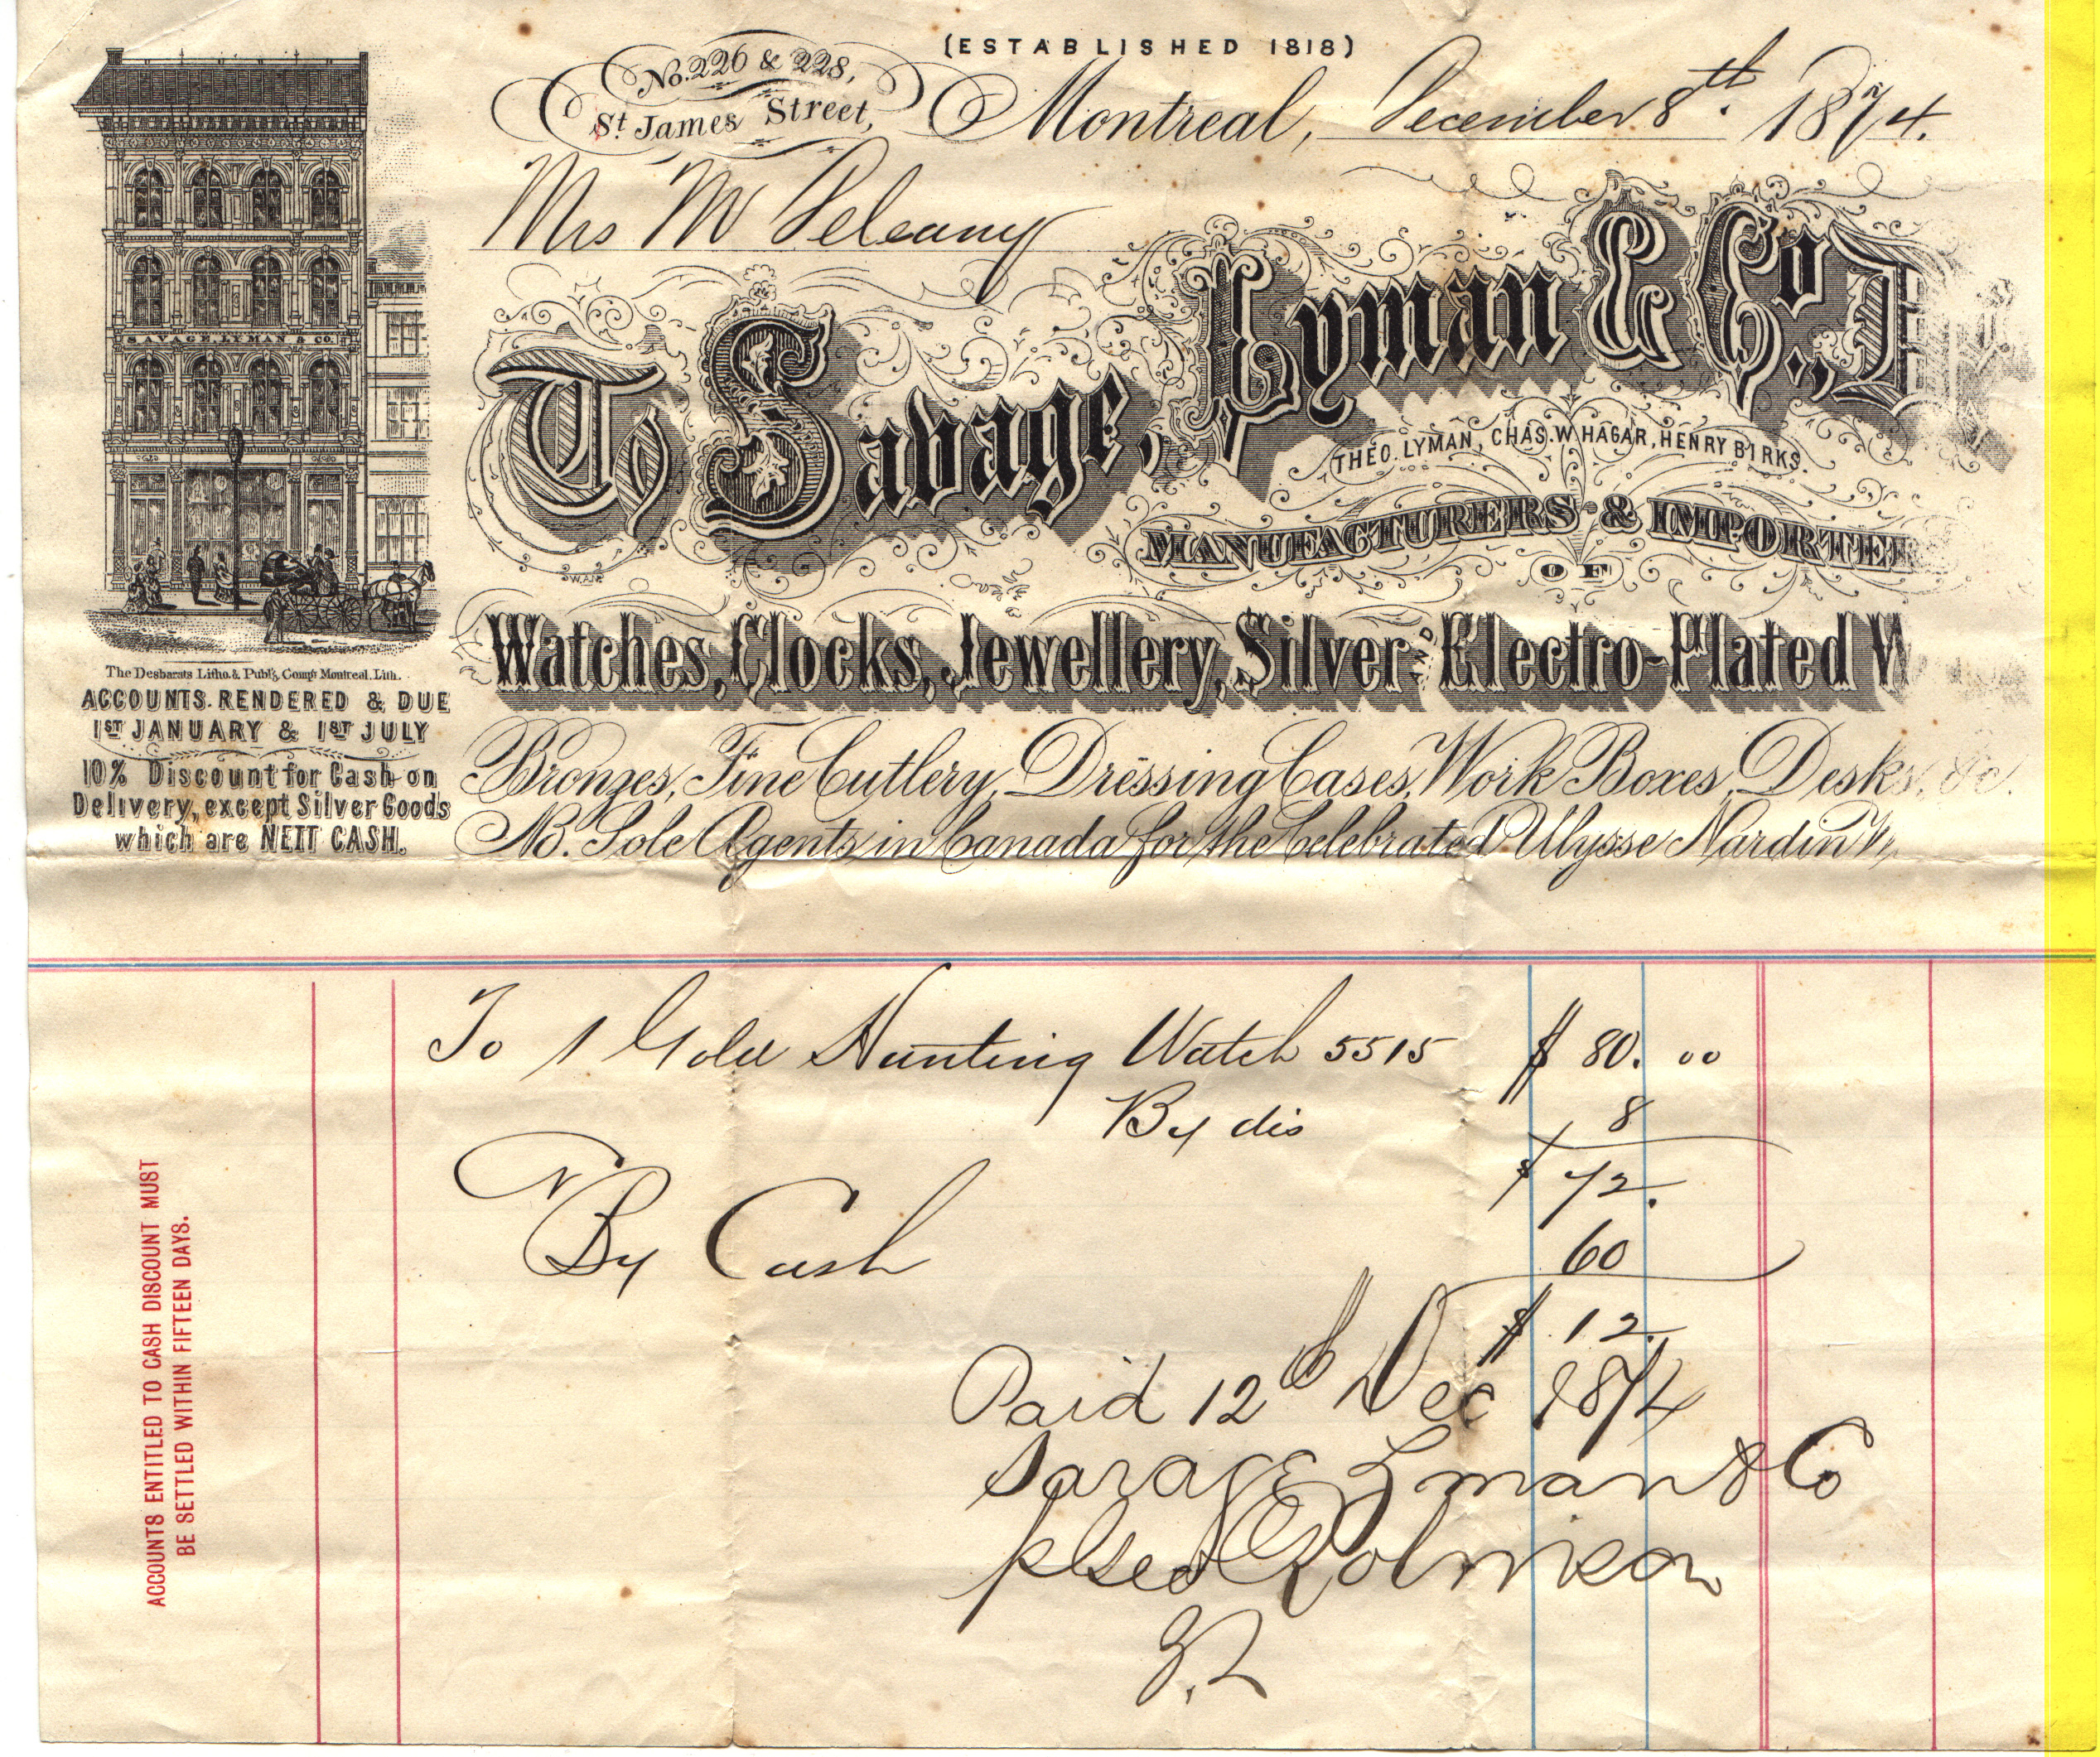 (ESTABLISHED 1818)
No. 226 & 228,
St James Street,
Montreal, December 8th. 1874.
Mrs
To Savage, Lyman & Co.,
THEO. LYMAN, CHAS. W HAGAR, HENRY BIRKS.
MANUFACTURERS & IMPORTER
OF
Watches, Clocks, Jewellery, Silver AND Electro-Plated W
Bronzes, Fine Cutlery, Dressing Cases, Work Boxes, Desks, &c.
NB. Sole Agents in Canada for the Celebrated Ulysse Nardin
SAVAGE, LYMAN & CO.
The Desbarats Litho. & Publ'g. Comp'y Montreal. Lith.
ACCOUNTS RENDERED & DUE
1ST JANUARY & 1ST JULY
10% Discount for Cash on
Delivery, except Silver Goods
which are NETT CASH.
To 1 Gold Hunting Watch 5515 $ 80. 00
By dis 8
$ 72.
By Cash 60
$ 12.
Paid 12th Dec 1874
Savage Lyman & Co
Robinson
ACCOUNTS ENTITLED TO CASH DISCOUNT MUST
BE SETTLED WITHIN FIFTEEN DAYS.